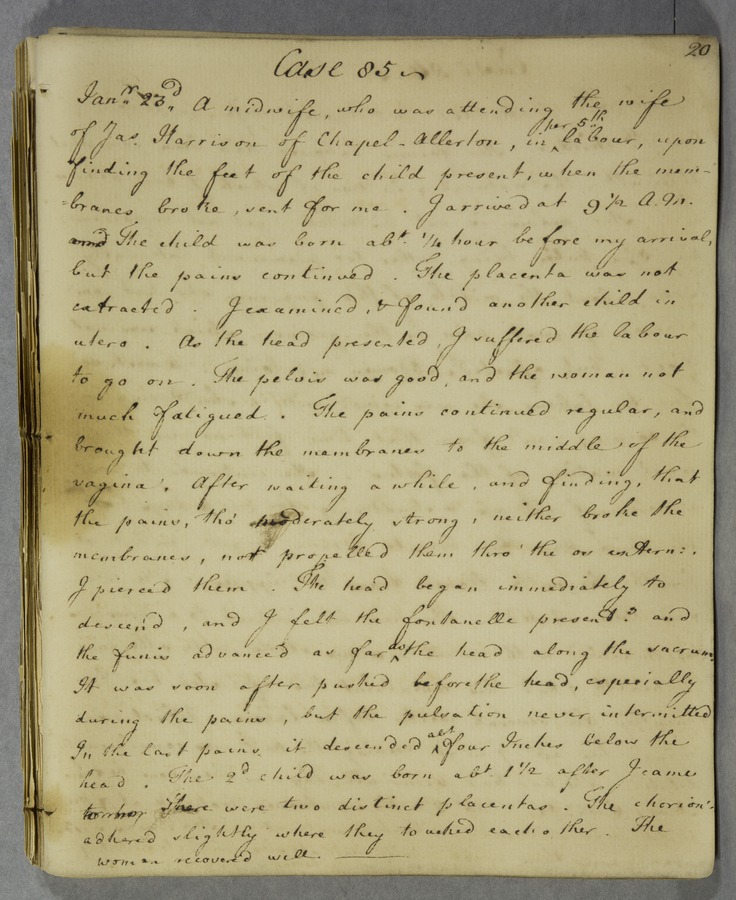 20
Case 85
Jany. 23d. A midwife, who was attending the wife
of Jas. Harrison of Chapel-Allerton, in her 5th. labour, upon
finding the feet of the child present, when the mem-
=branes broke, sent for me. I arrived at 9 1/2 A.M.
and The child was born abt. 1/4 hour before my arrival,
but the pains continued. The placenta was not
extracted. I examined, & found another child in
utero. As the head presented, I suffered the labour
to go on. The pelvis was good, and the woman not
much fatigued. The pains continued regular, and
brought down the membranes to the middle of the
vagina. After waiting a while, and finding, that
the pains, tho' moderately strong, neither broke the
membranes, not propelled them thro' the os extern:.
I pierced them. The head began immediately to
descend, and I felt the fontanelle present: and
the funis advanced as far as the head along the sacrum.
It was soon after pushed before the head, especially
during the pains, but the pulsation never intermitted
In the last pains it descended abt four Inches below the
head. The 2d child was born abt. 1 1/2 after I came
There were two distinct placentas. The chorion's
adhered slightly where they touched each other. The
woman recovered well.